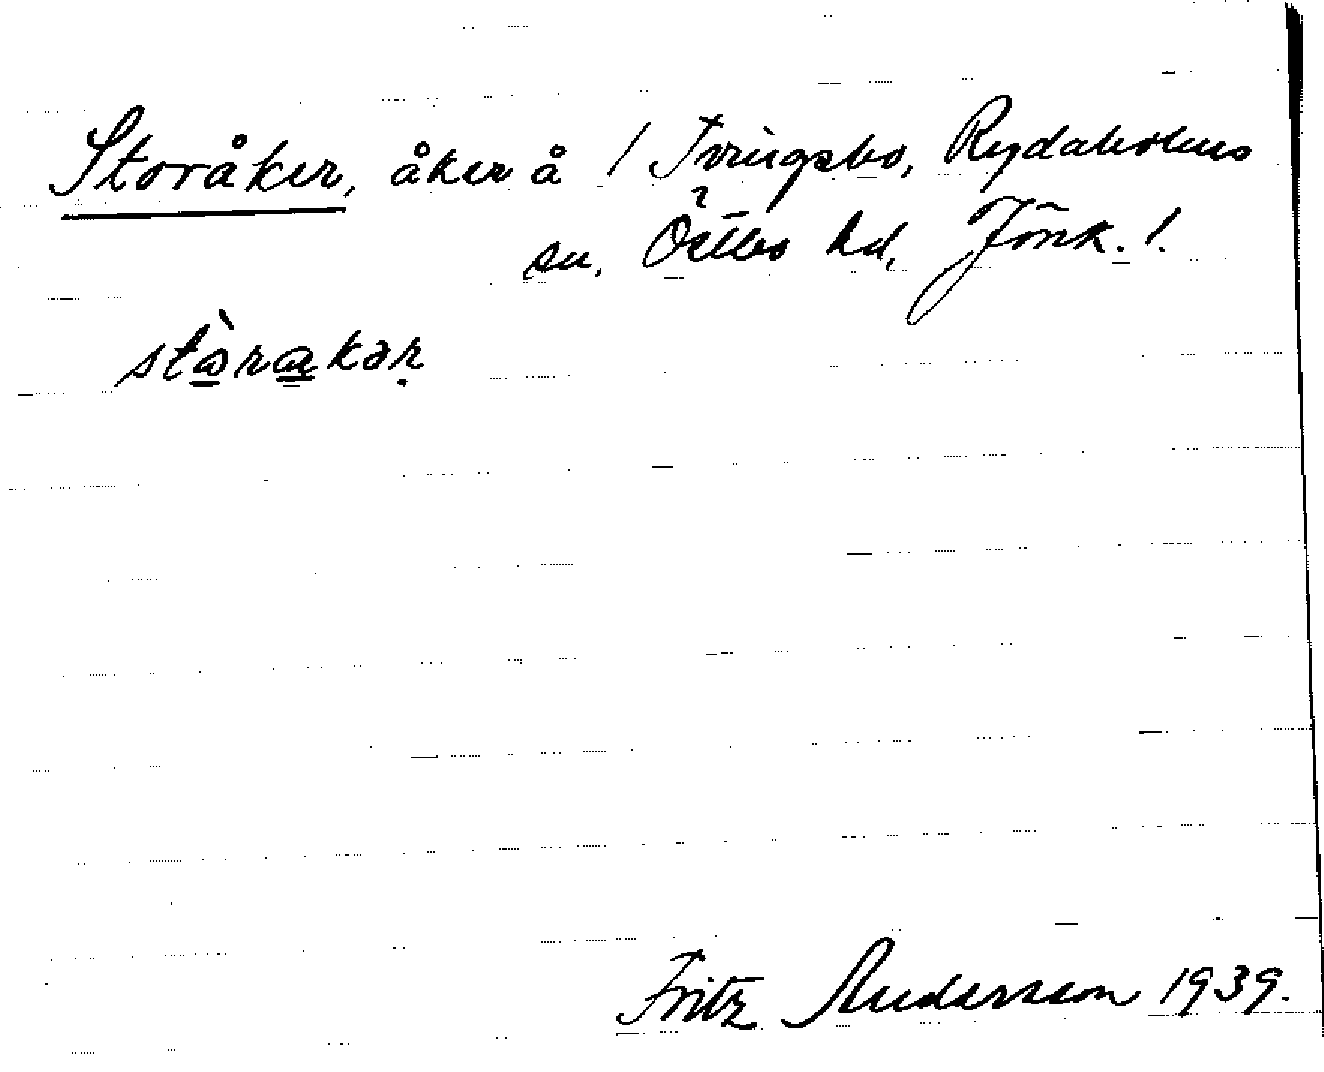 Storåker, åker å / Tvringsbo, Rydaholms
sn, Östbo hd, Jönk. l.
stòrakər
Fritz Andersson 1939.